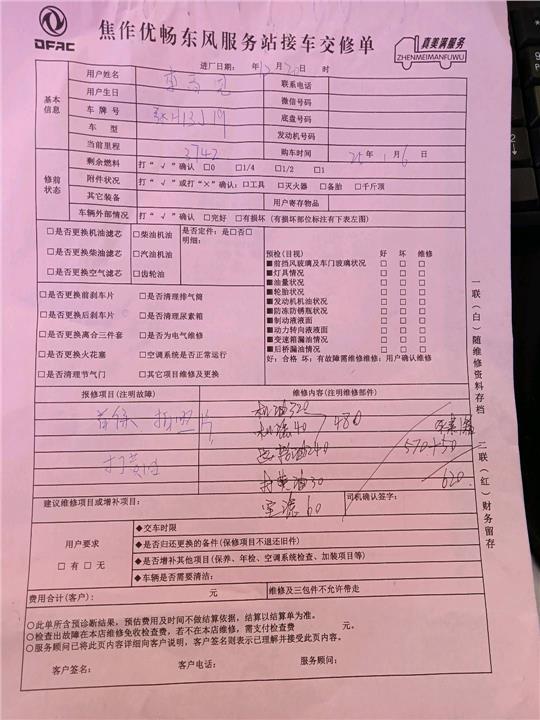 DFAC
焦作优畅东风服务站接车交修单
真美满服务
ZHENMEIMANFUWU
进厂日期: 年 月 日
基本信息
用户姓名
联系电话
用户生日
微信号码
车牌号
底盘号码
车型
发动机号码
当前里程 3742
购车时间 25年 1 6日
修前状态
剩余燃料 打“√”确认 □0 □1/4 □1/2 □1
附件状况 打“√”或打“×”确认:□工具 □灭火器 □备胎 □千斤顶
其它装备 用户寄存物品
车辆外部情况 打“√”确认 □完好 □有损坏(有损坏部位标注有下表左图)
□是否更换机油滤芯 □柴油机油 是否定件:是□否□
明细:
□是否更换柴油滤芯 □汽油机油
□是否更换空气滤芯 □齿轮油
预检(目视) 好 坏 维修
■前挡风玻璃及车门玻璃状况 □ □ □
■灯具情况 □ □ □
■油量状况 □ □ □
■轮胎状况 □ □ □
■发动机机油状况 □ □ □
■防冻防锈瓶状况 □ □ □
■制动液液面 □ □ □
■动力转向液液面 □ □ □
■变速箱漏油情况 □ □ □
■后桥漏油情况 □ □ □
好:合格 坏:有故障需维修维修:用户确认维修
□是否更换前刹车片 □是否清理排气筒
□是否更换后刹车片 □是否清理尿素箱
□是否更换离合三件套 □是否为电气维修
□是否更换火花塞 □空调系统是否正常运行
□是否清理节气门 □其它项目维修及更换
报修项目(注明故障) 维修内容(注明维修部件)
首保
机油320
机滤40
480
240
570+50
打黄油
打黄油30
620
空滤60
建议维修项目或增补项目:
司机确认签字:
用户要求
□有 □无
◆交车时限
◆是否归还更换的备件(保修项目不退还旧件)
◆是否增补其他项目(保养、年检、空调系统检查、加装项目等)
◆车辆是否需要清洁:
费用合计(客户): 元 维修及三包件不允许带走
○此单所含预诊断结果,预估费用及时间不做结算依据,结算以结算单为准。
○检查出故障在本店维修免收检查费,若不在本店维修,需支付检查费 元。
○服务顾问已将此页内容详细向客户说明,客户签名则表示已理解并接受此页内容。
客户签名: 客户电话: 服务顾问:
一联(白)随维修资料存档 二联(红)财务留存